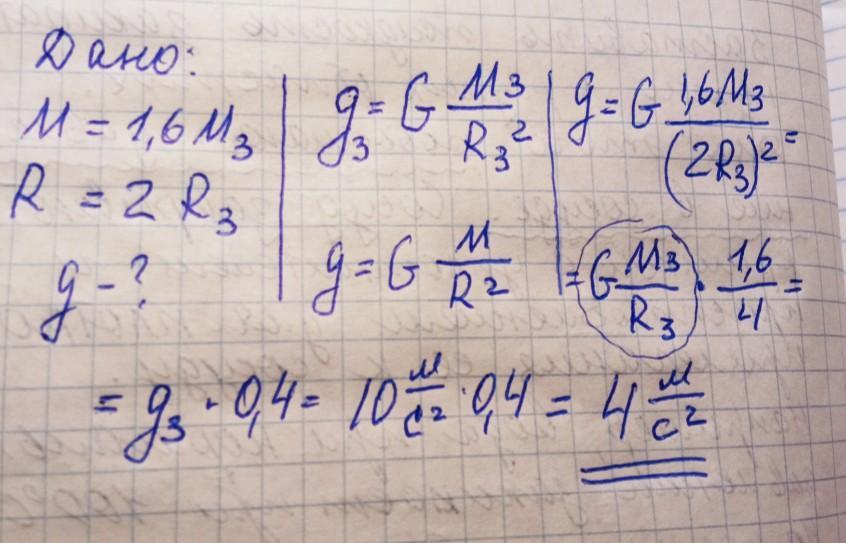 Дано:
M = 1,6 M₃
R = 2 R₃
g - ?
g₃ = G M₃/R₃²
g = G M/R²
g = G 1,6M₃/(2R₃)² =
= G M₃/R₃ · 1,6/4 =
= g₃ · 0,4 = 10 м/с² · 0,4 = 4 м/с²